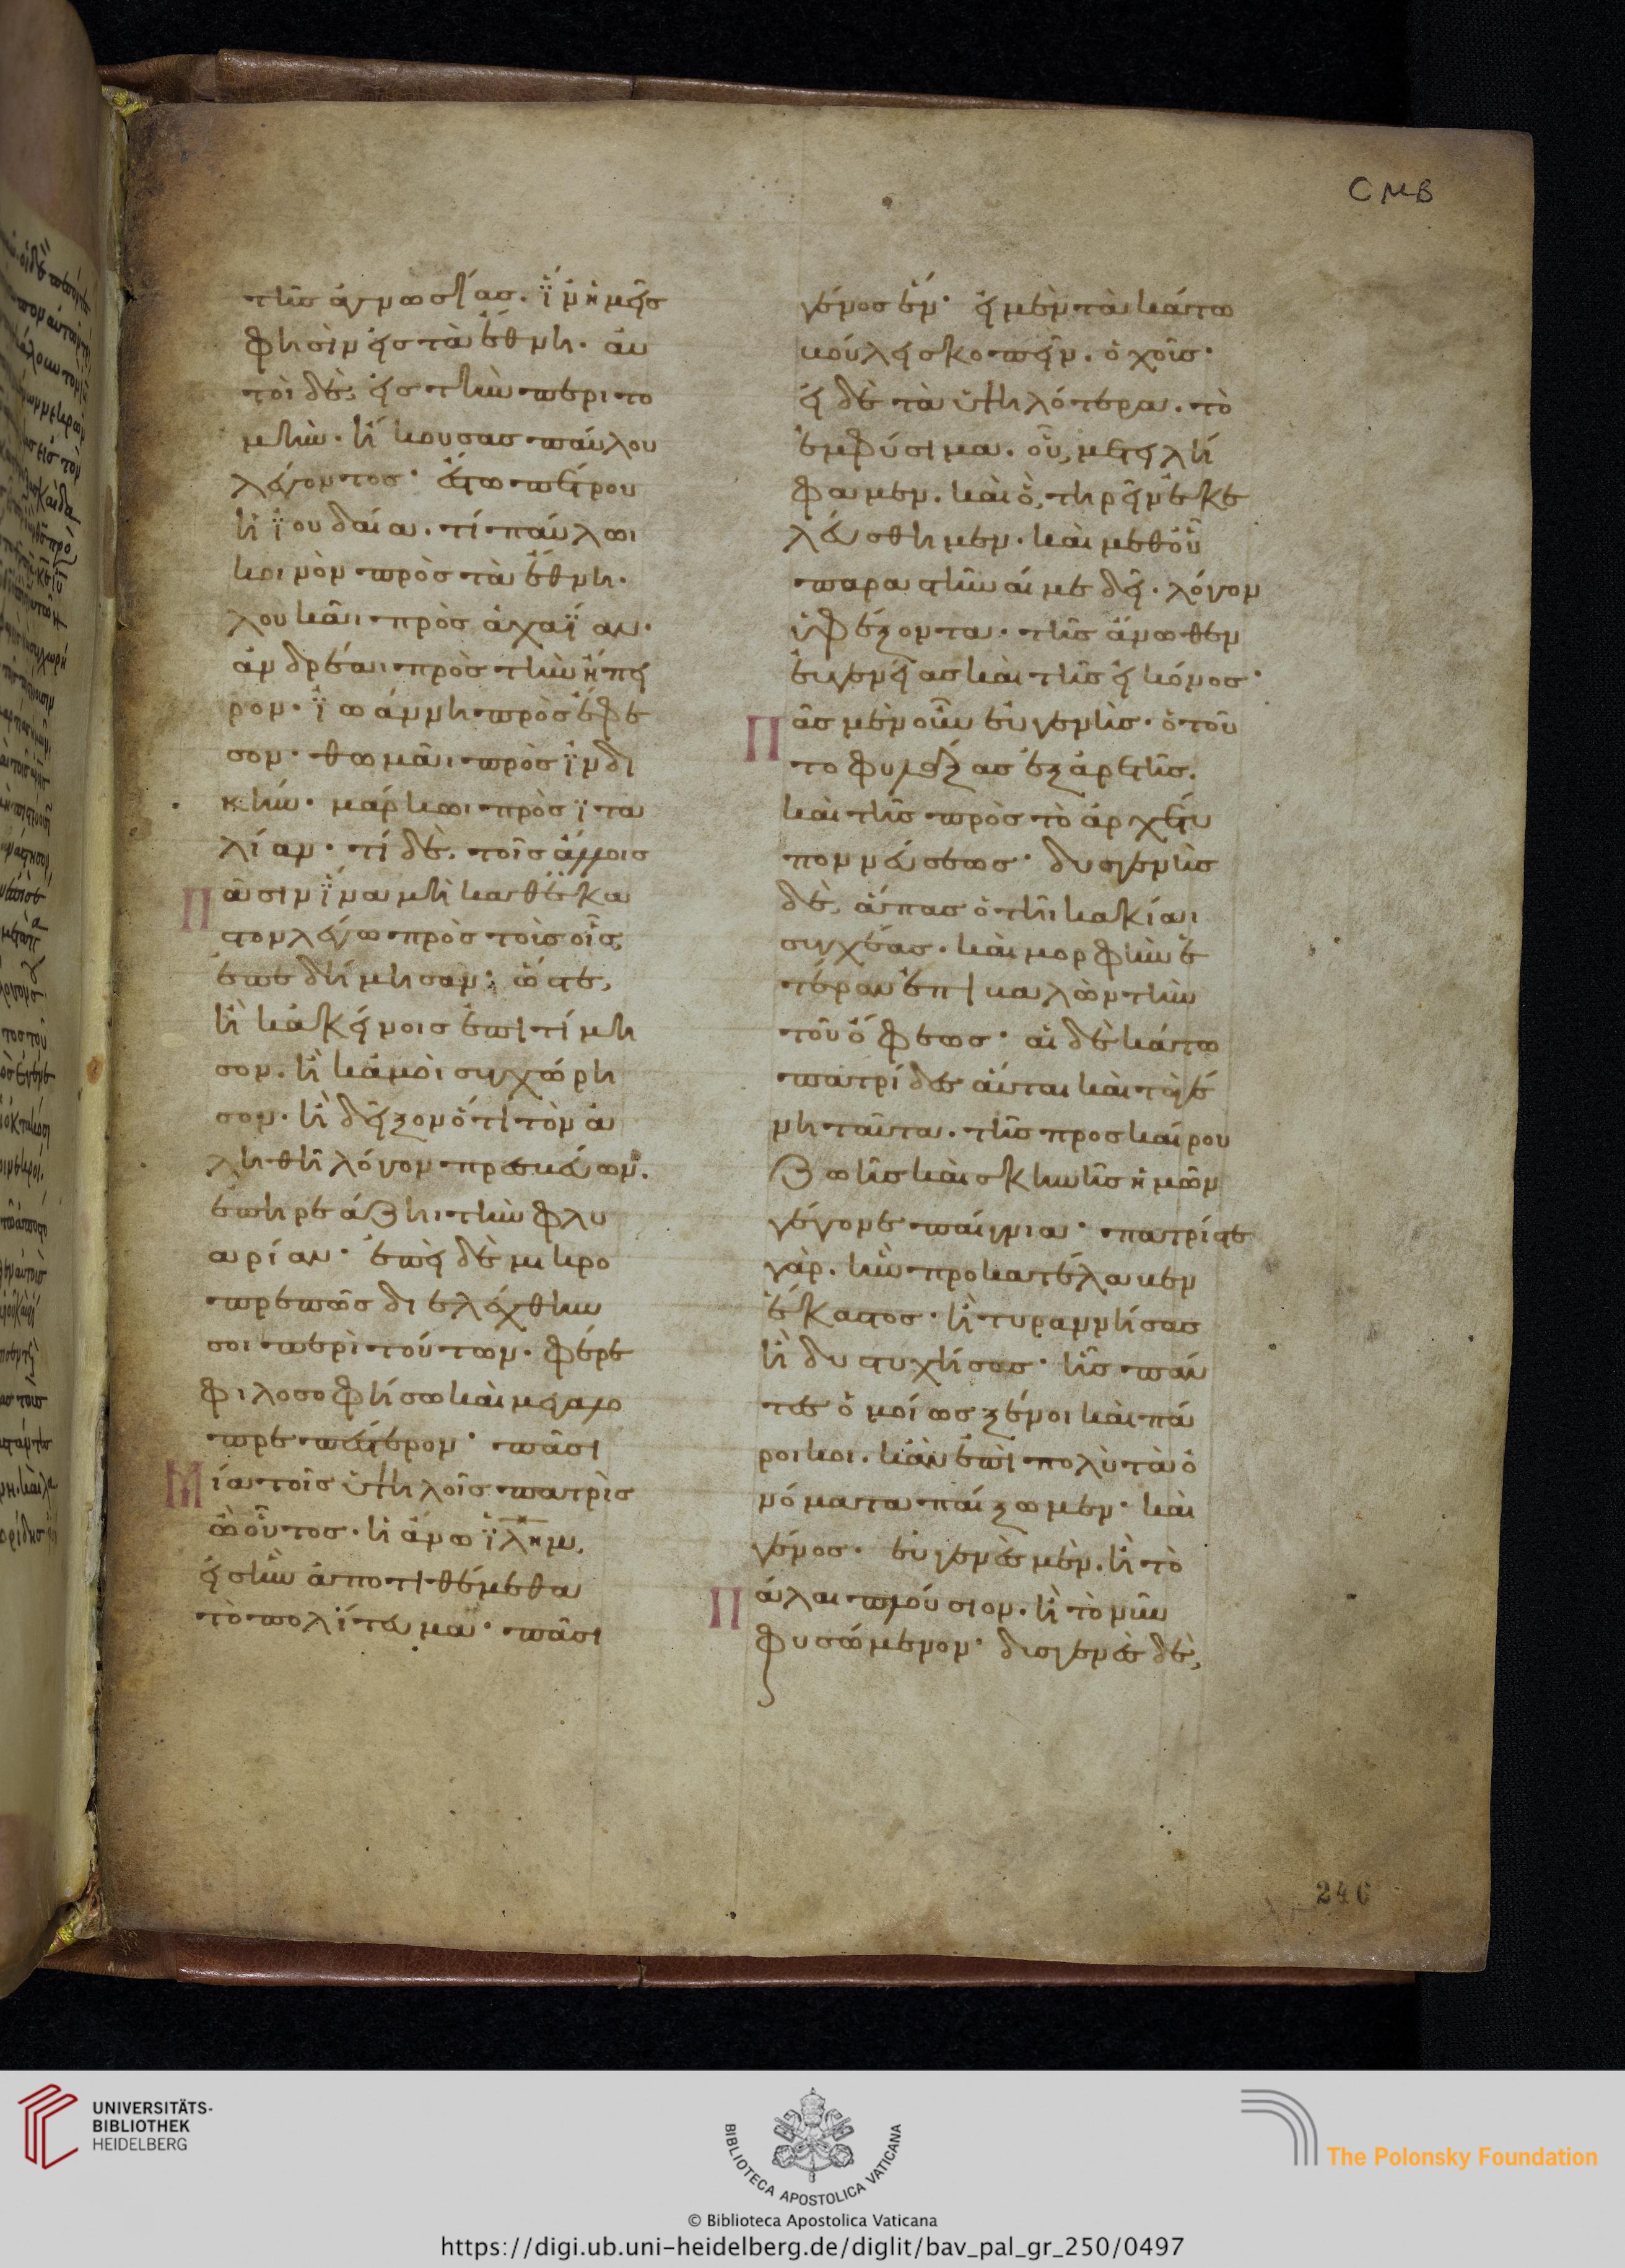 CMB
τῆς ἁγνωσίας. ἵν ἡμεῖς
φησὶν εἰς τὰ ἔθνη. αὐ
τοὶ δὲ, εἰς τὴν περιτο
μὴν. ἤκουσας παύλου
λέγοντος· ἔστω πέτρου
ἡ ἰουδαία. τί παύλωι
κοινὸν πρὸς τὰ ἔθνη.
λουκᾶι πρὸς ἀχαΐαν.
ἀνδρέαι πρὸς τὴν ἤπει
ρον. ἰωάννηι πρὸς ἔφε
σον. θωμᾶι πρὸς ἰνδι
κήν. μάρκωι πρὸς ἰτα
λίαν. τί δὲ. τοῖς ἄλλοις
Πᾶσιν ἵνα μὴ καθέκα
στον λέγω πρὸς τοὶς οἷς
ἐπεδήμησαν; ὥστε,
ἢ κἀκείνοις ἐπιτίμη
σον. ἢ κἀμοὶ συγχώρη
σον. ἢ δεῖξον ὅτι τὸν ἀ
ληθῆ λόγον πρεσβεύων.
ἐπηρεάζηι τὴν φλυ
αρίαν. ἐπεὶ δὲ μικρο
πρεπῶς διελέχθην
σοι περὶ τούτων. φέρε
φιλοσοφήσω καὶ μεγαλο
πρεπέστερον· πᾶσι
Μία τοῖς ὑψηλοῖς πατρὶς
ὦ οὗτος. ἡ ἄνω ἰλημ,
εἰς ἣν ἀποτιθέμεθα
τὸ πολίτευμα· πᾶσι
γένος ἕν· εἰ μὲν τὰ κάτω
βούλει σκοπεῖν. ὁ χοῦς·
εἰ δὲ τὰ ὑψηλότερα. τὸ
ἐμφύσιμα. οὗ, μετειλή
φαμεν. καὶ ὃ, τηρεῖν ἐκε
λεύσθημεν. καὶ μεθοὗ
παραστῆναί με δεῖ. λόγον
ὑφέξοντα. τῆς ἄνωθεν
εὐγενείας καὶ τῆς εἰκόνος·
Πᾶς μὲν οὖν εὐγενὴς. ὁ τοῦ
το φυλάξας ἐξ ἀρετῆς.
καὶ τῆς πρὸς τὸ ἀρχέτυ
πον νεύσεως· δυσγενὴς
δὲ, ἅπας ὁ τῆι κακίαι
συγχέας. καὶ μορφὴν ἑ
τέραν ἐπιβαλὼν τὴν
τοῦ ὄφεως· αἱ δὲ κάτω
πατρίδες αὗται καὶ τὰ γέ
νη ταῦτα. τῆς προσκαίρου
ζωῆς καὶ σκηνῆς ἡμῶν
γέγονε παίγνια· πατρίς τε
γὰρ. ἣν προκατέλαβεν
ἕκαστος. ἢ τυραννήσας
ἢ δυστυχήσας. ἧς πάν
τες ὁμοίως ξένοι καὶ πά
ροικοι. κἂν ἐπὶ πολὺ τὰ ὀ
νόματα παίζωμεν· καὶ
γένος. εὐγενὲς μὲν. ἢ τὸ
Πάλαι πλούσιον. ἢ τὸ νῦν
φυσώμενον· δυσγενὲς δὲ,
246
UNIVERSITÄTS-
BIBLIOTHEK
HEIDELBERG
BIBLIOTECA APOSTOLICA VATICANA
The Polonsky Foundation
© Biblioteca Apostolica Vaticana
https://digi.ub.uni-heidelberg.de/diglit/bav_pal_gr_250/0497